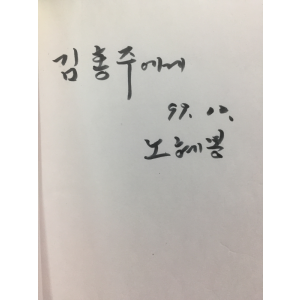 김홍주에게
99. 12.
노혜봉